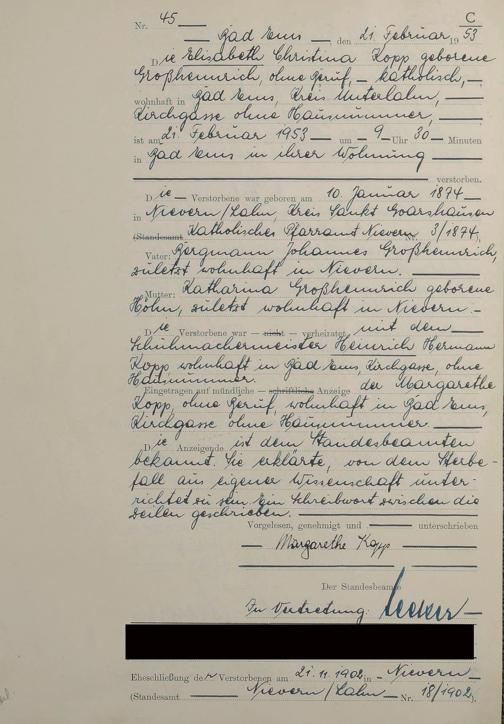 C
Nr. 45
Bad Ems, den 21. Februar 1953
Die Elisabeth Christina Kopp geborene
Großheinrich, ohne Beruf, – katholisch, –
wohnhaft in Bad Ems, Kreis Unterlahn,
Kirchgasse ohne Hausnummer,
ist am 21. Februar 1953 um 9 Uhr 30 Minuten
in Bad Ems in ihrer Wohnung
verstorben.
Die Verstorbene war geboren am 10. Januar 1874
in Nievern/Lahn, Kreis Sankt Goarshausen
(Standesamt Katholisches Pfarramt Nievern Nr. 3/1874)
Vater: Bergmann Johannes Großheinrich,
zuletzt wohnhaft in Nievern.
Mutter: Katharina Großheinrich geborene
Höhn, zuletzt wohnhaft in Nievern.–
Die Verstorbene war – nicht – verheiratet mit dem
Schuhmachermeister Heinrich Hermann
Kopp wohnhaft in Bad Ems, Kirchgasse, ohne
Hausnummer.
Eingetragen auf mündliche – schriftliche Anzeige der Margarethe
Kopp, ohne Beruf, wohnhaft in Bad Ems,
Kirchgasse ohne Hausnummer.
Die Anzeigende ist dem Standesbeamten
bekannt. Sie erklärte, von dem Sterbe-
fall aus eigener Wissenschaft unter-
richtet zu sein. Ein Schreibwort zwischen die
Zeilen geschrieben.
Vorgelesen, genehmigt und unterschrieben
Margarethe Kopp
Der Standesbeamte
In Vertretung:
Eheschließung der Verstorbenen am 21.11.1902 in Nievern
(Standesamt Nievern/Lahn Nr. 18/1902).